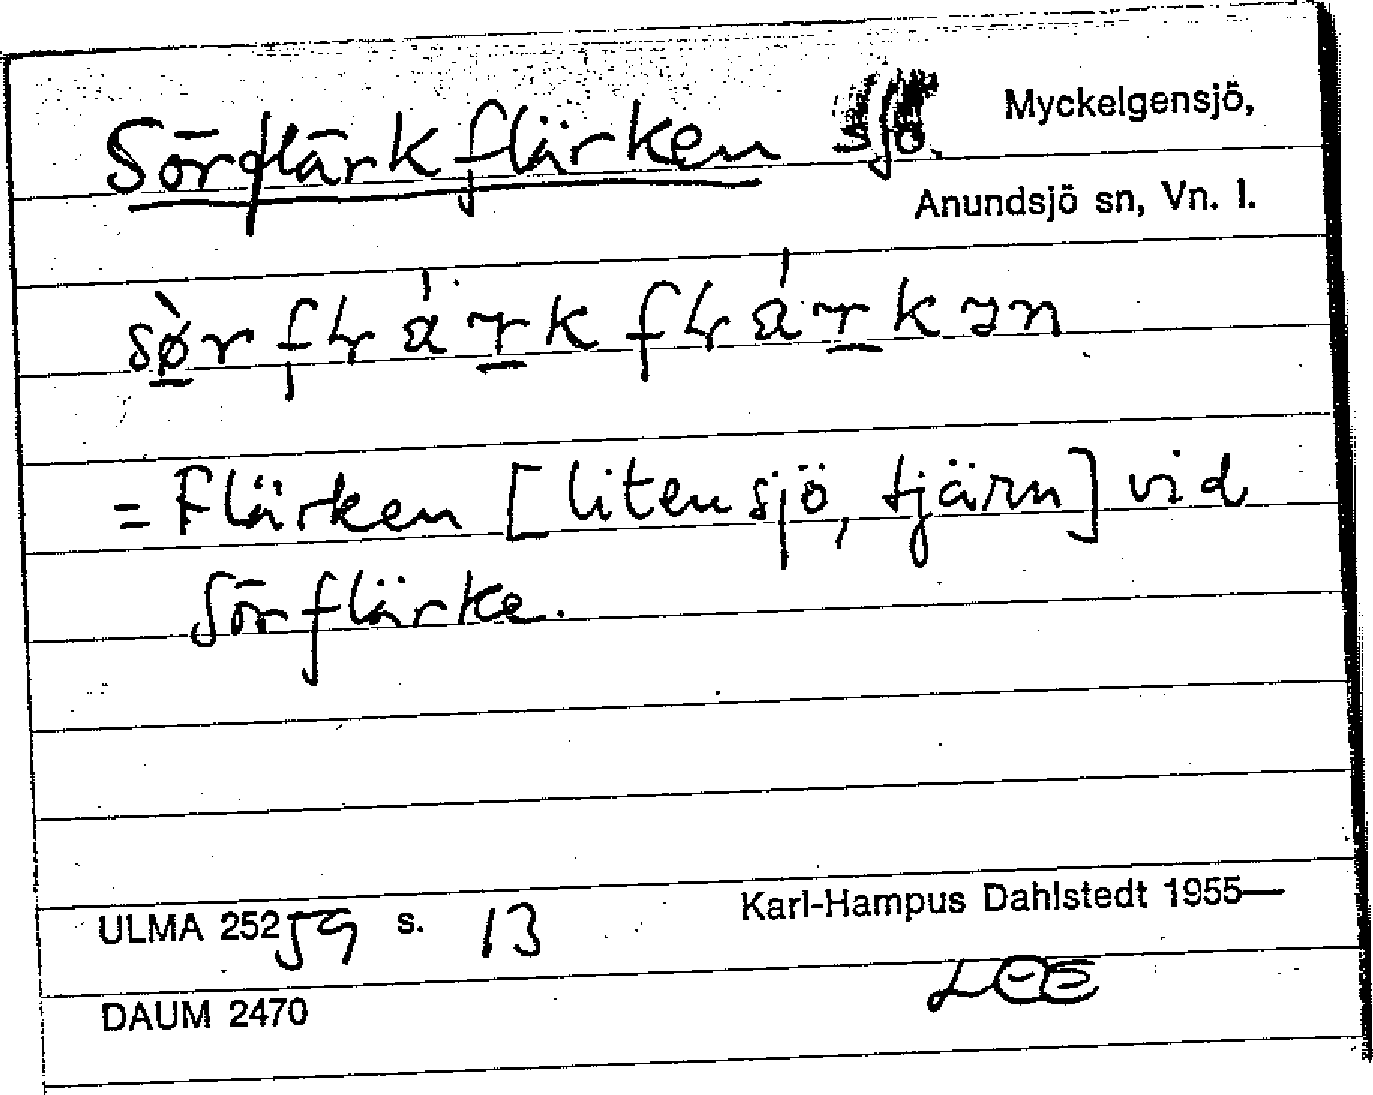 Sörflärkflärken sjö. Myckelgensjö,
Anundsjö sn, Vn. l.
= Flärken [liten sjö, tjärn] vid
Sörflärke.
ULMA 25259 s. 13 Karl-Hampus Dahlstedt 1955—
DAUM 2470